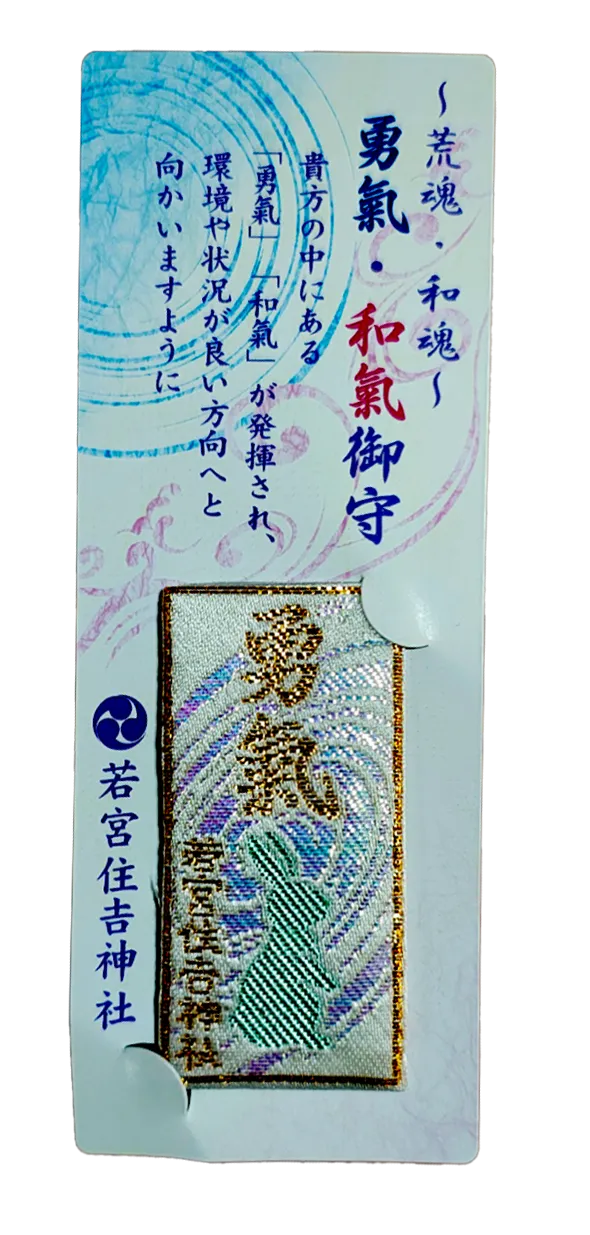 ～荒魂・和魂～
勇氣・和氣御守
貴方の中にある
「勇氣」「和氣」が発揮され、
環境や状況が良い方向へと
向かいますように
勇氣
若宮住吉神社
若宮住吉神社